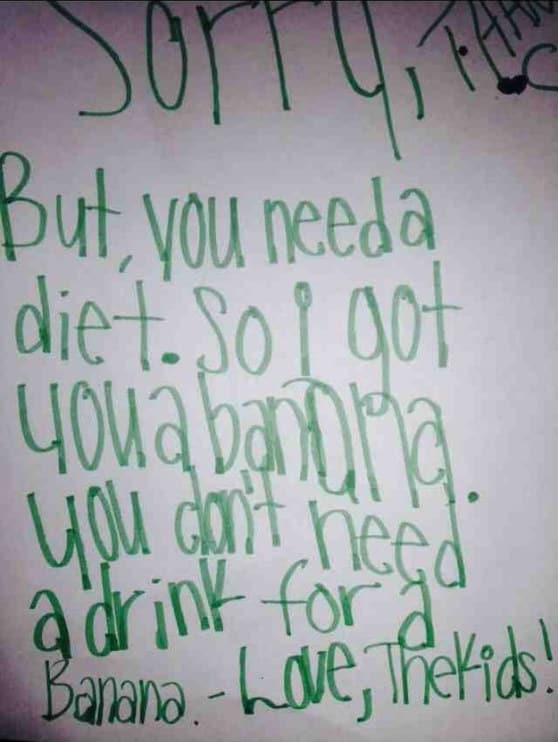 Sorry,
But, you need a
diet. So i got
you a banana.
you don't need
a drink for a
Banana. - Love, The Kids!